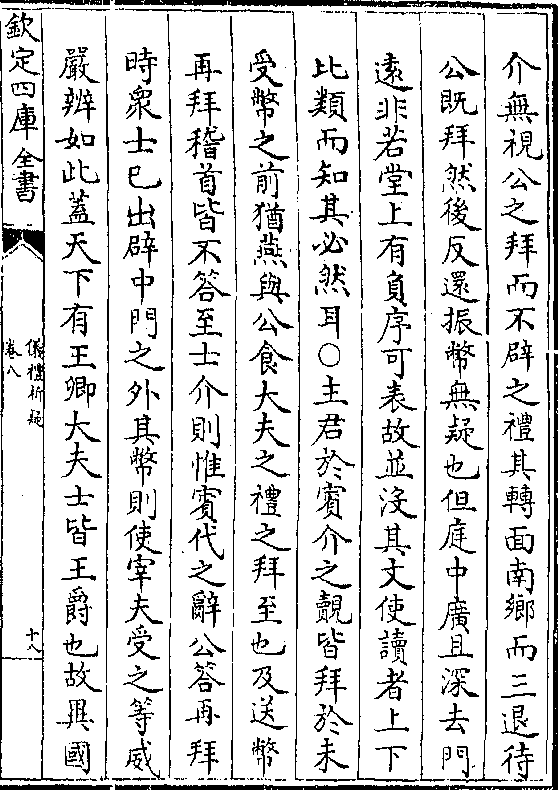 介無視公之拜而不辟之禮其轉面南鄉而三退待
公既拜然後反還振幣無疑也但庭中廣且深去門
遠非若堂上有負序可表故並沒其文使讀者上下
比類而知其必然耳○主君於賓介之覿皆拜於未
受幣之前猶燕與公食大夫之禮之拜至也及送幣
再拜稽首皆不答至士介則惟賓代之辭公答再拜
時衆士已出辟中門之外其幣則使宰夫受之等威
嚴辨如此蓋天下有王卿大夫士皆王爵也故異國
欽定四庫全書
儀禮析疑
卷八
十八